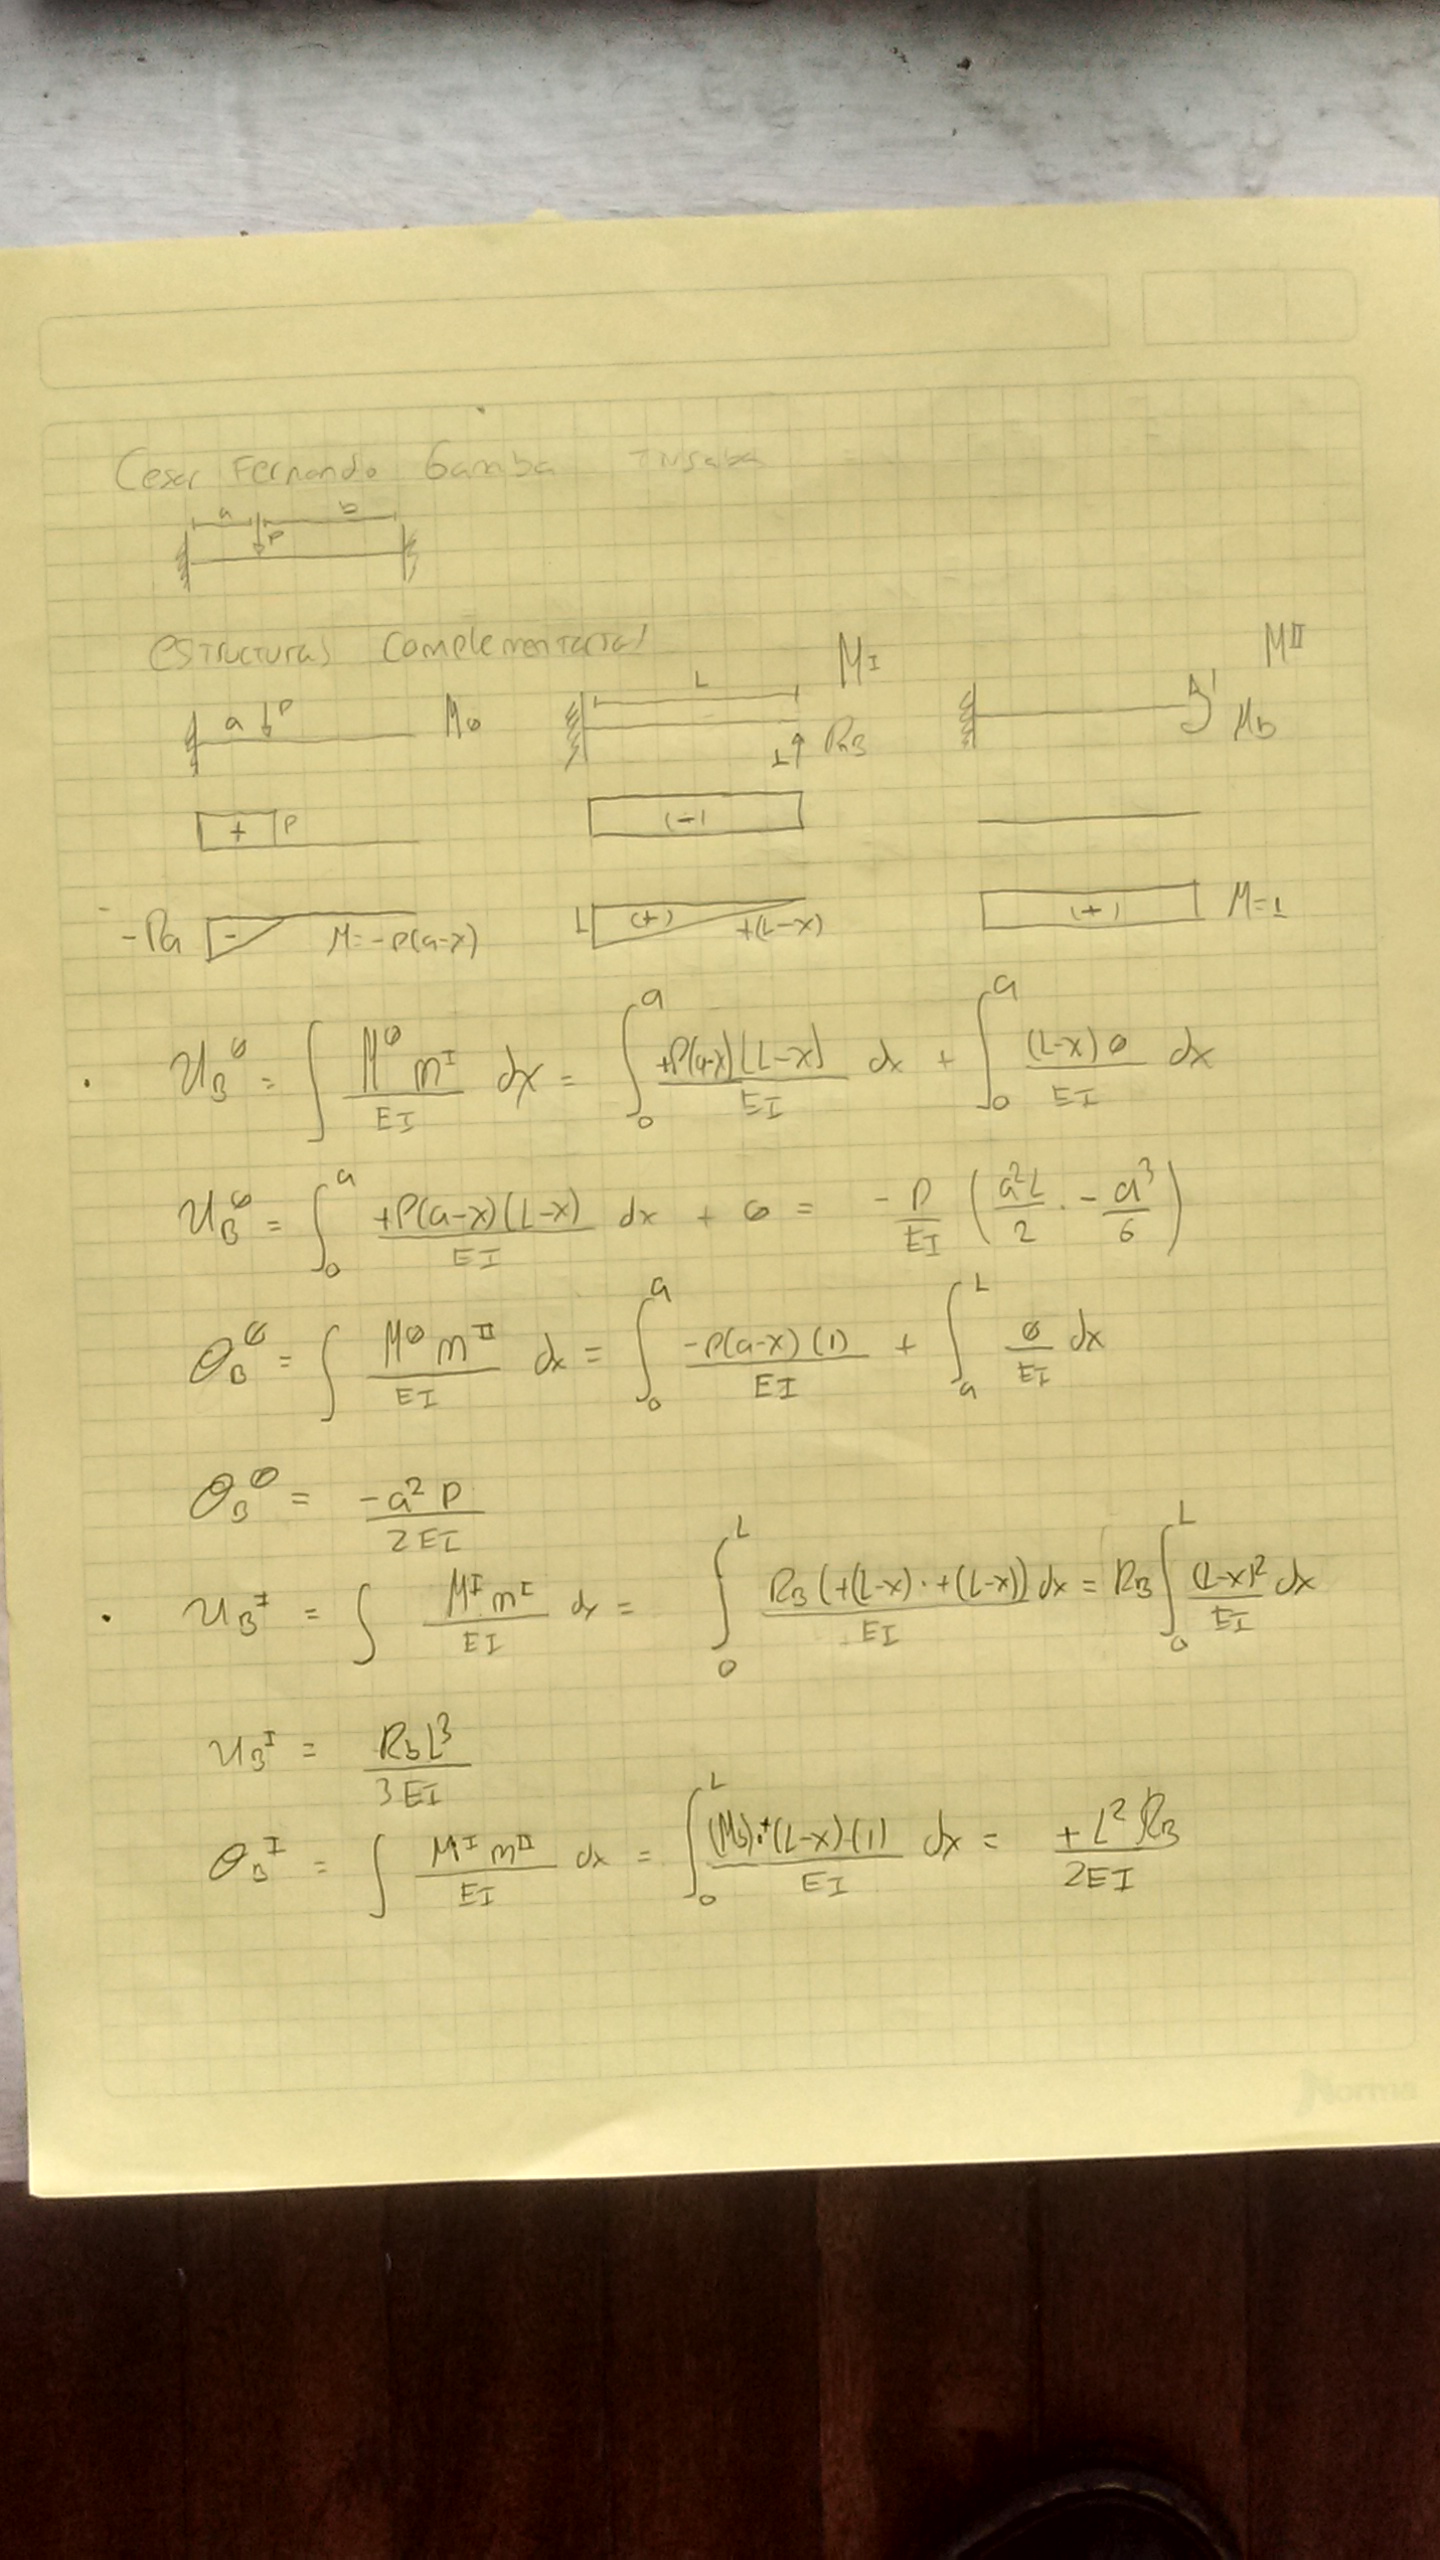 Cesar Fernando Gamba
a b
P
estructuras complementarias
a P M0 L MI MII
1 RB Mb
+ P (-)
-Pa - M=-P(a-x) L (+) +(L-x) (+) M=1
u_B^0 = ∫ M^0 m^I / EI dx = ∫_0^a +P(a-x)(L-x) / EI dx + ∫_0^a (L-x)0 / EI dx
u_B^0 = ∫_0^a +P(a-x)(L-x) / EI dx + 0 = -P/EI (a²L/2 - a³/6)
θ_B^0 = ∫ M^0 m^II / EI dx = ∫_0^a -P(a-x)(1) / EI + ∫_a^L 0/EI dx
θ_B^0 = -a²P / 2EI
u_B^I = ∫ M^I m^I / EI dx = ∫_0^L RB(+(L-x)·+(L-x)) dx / EI = RB ∫_0^L (L-x)² / EI dx
u_B^I = RbL³ / 3EI
θ_B^I = ∫ M^I m^II / EI dx = ∫_0^L (Mb)·+(L-x)·(1) / EI dx = +L²RB / 2EI
Norma